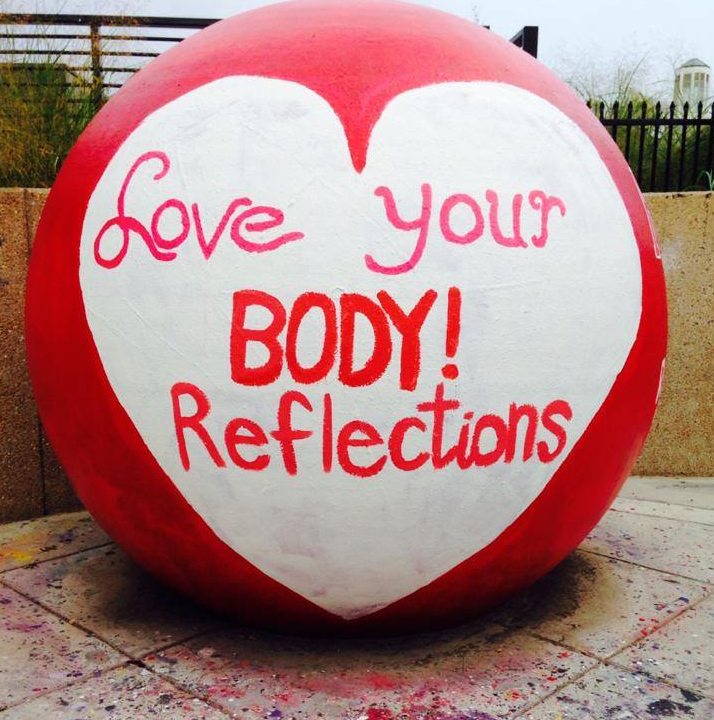 Love your
BODY!
Reflections